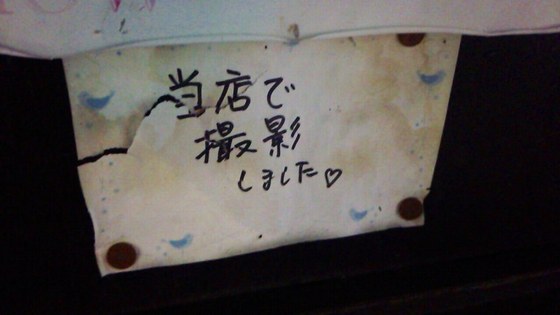 当店で
撮影
しました♡